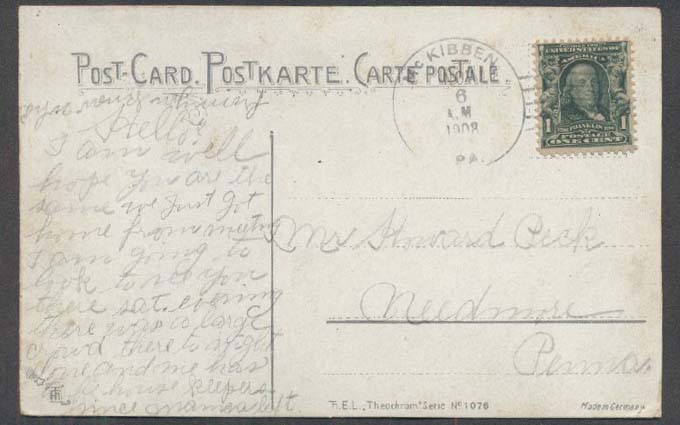 POST-CARD. POSTKARTE. CARTE POSTALE.
McKIBBEN
6
A.M
1908
PA.
UNITED STATES OF
AMERICA
1 1
POSTAGE
ONE CENT
Hello
I am well
hope you are the
same we Just got
home from meeting
I am going to
look to see you
there sat. evening
there was a large
crowd there to night
and me has
house keepers
since mamma left
Mr Howard Peck
Needmore
Penna.
T.S.N.
"Theochrom" Serie No 1076
Made in Germany